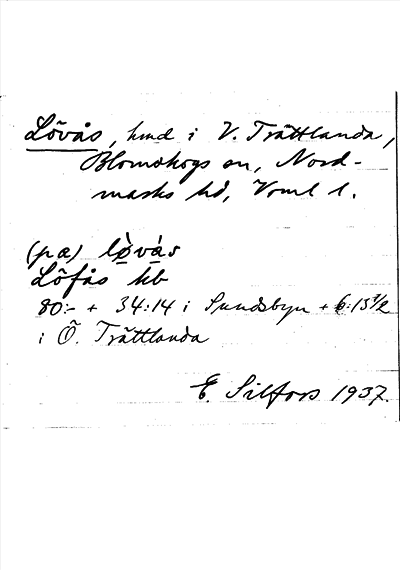 Lövås, hmd i V. Trättlanda,
Blomskogs sn, Nord-
marks hd, Vrml l.
(pæ) lø̀vås
Löfås kb
80:- + 34:14 i Sundsbyn + 6:13 1/2
i Ö. Trättlanda
E. Silfors 1937.